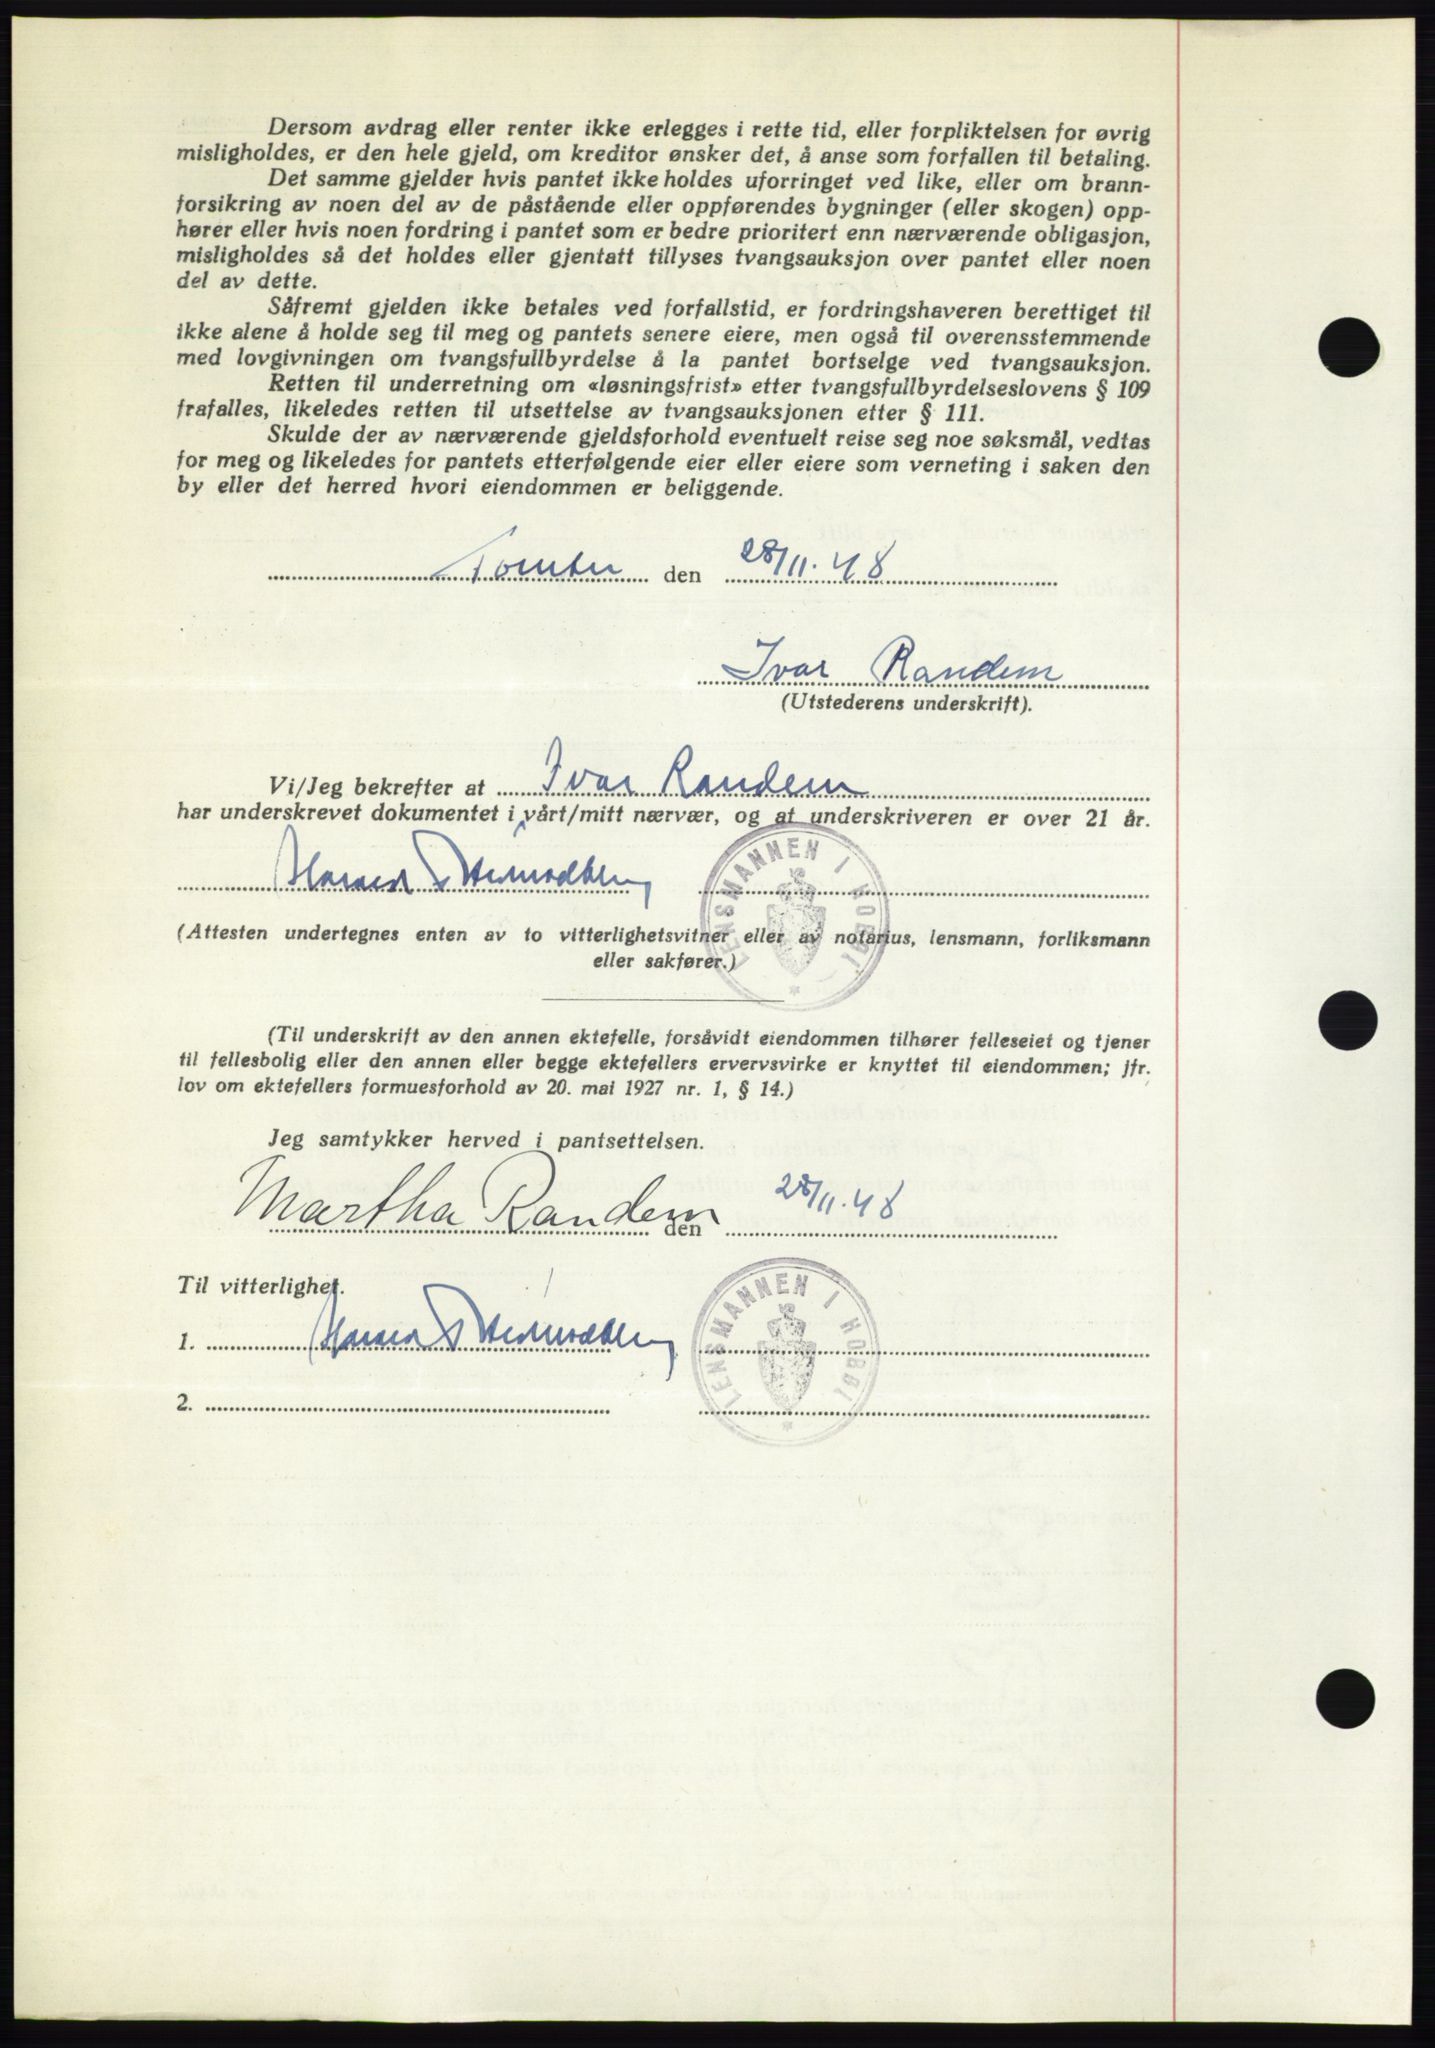 Dersom avdrag eller renter ikke erlegges i rette tid, eller forpliktelsen for øvrig
misligholdes, er den hele gjeld, om kreditor ønsker det, å anse som forfallen til betaling.
Det samme gjelder hvis pantet ikke holdes uforringet ved like, eller om brann-
forsikring av noen del av de påstående eller oppførendes bygninger (eller skogen) opp-
hører eller hvis noen fordring i pantet som er bedre prioritert enn nærværende obligasjon,
misligholdes så det holdes eller gjentatt tillyses tvangsauksjon over pantet eller noen
del av dette.
Såfremt gjelden ikke betales ved forfallstid, er fordringshaveren berettiget til
ikke alene å holde seg til meg og pantets senere eiere, men også til overensstemmende
med lovgivningen om tvangsfullbyrdelse å la pantet bortselge ved tvangsauksjon.
Retten til underretning om «løsningsfrist» etter tvangsfullbyrdelseslovens § 109
frafalles, likeledes retten til utsettelse av tvangsauksjonen etter § 111.
Skulde der av nærværende gjeldsforhold eventuelt reise seg noe søksmål, vedtas
for meg og likeledes for pantets etterfølgende eier eller eiere som verneting i saken den
by eller det herred hvori eiendommen er beliggende.
Tomter den 28/11.48
Ivar Randem
(Utstederens underskrift).
Vi/Jeg bekrefter at Ivar Randem
har underskrevet dokumentet i vårt/mitt nærvær, og at underskriveren er over 21 år.
LENSMANNEN I HOBØL
(Attesten undertegnes enten av to vitterlighetsvitner eller av notarius, lensmann, forliksmann
eller sakfører.)
(Til underskrift av den annen ektefelle, forsåvidt eiendommen tilhører felleseiet og tjener
til fellesbolig eller den annen eller begge ektefellers ervervsvirke er knyttet til eiendommen; jfr.
lov om ektefellers formuesforhold av 20. mai 1927 nr. 1, § 14.)
Jeg samtykker herved i pantsettelsen.
Martha Randem den 28/11.48
Til vitterlighet.
1.
LENSMANNEN I HOBØL
2.